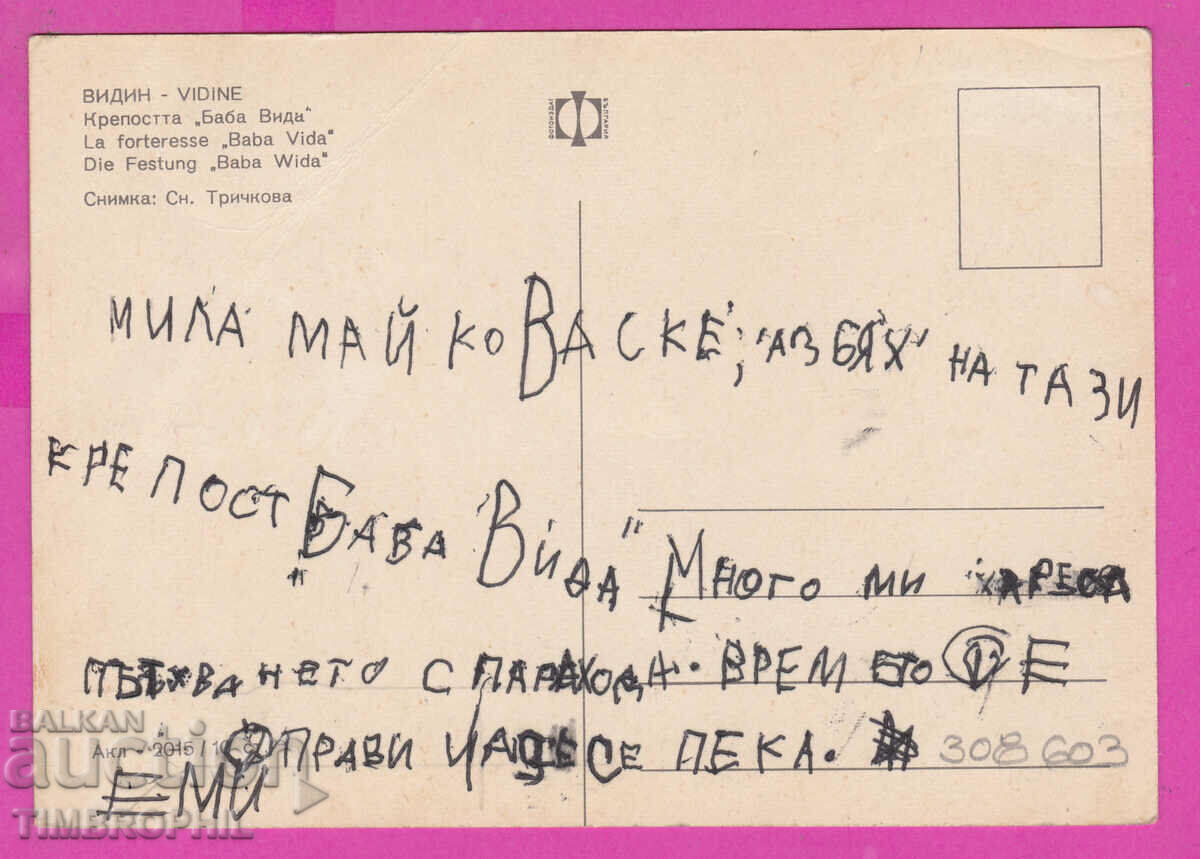 ВИДИН - VIDINE
Крепостта „Баба Вида“
La forteresse „Baba Vida“
Die Festung „Baba Wida“
Снимка: Сн. Тричкова
ФОТОИЗДАТ БЪЛГАРИЯ
МИЛА МАЙКО ВАСКЕ, АЗ БЯХ НА ТАЗИ
КРЕПОСТ „БАБА ВИДА“ МНОГО МИ ХАРЕСА
ПЪТУВАНЕТО С ПАРАХОДА. ВРЕМЕТО СЕ
ОПРАВИ И ЩЕ СЕ ПЕКА.
ЕМИ
Акл - 2015 /
308603
BALKAN
auction
TIMBROPHIL